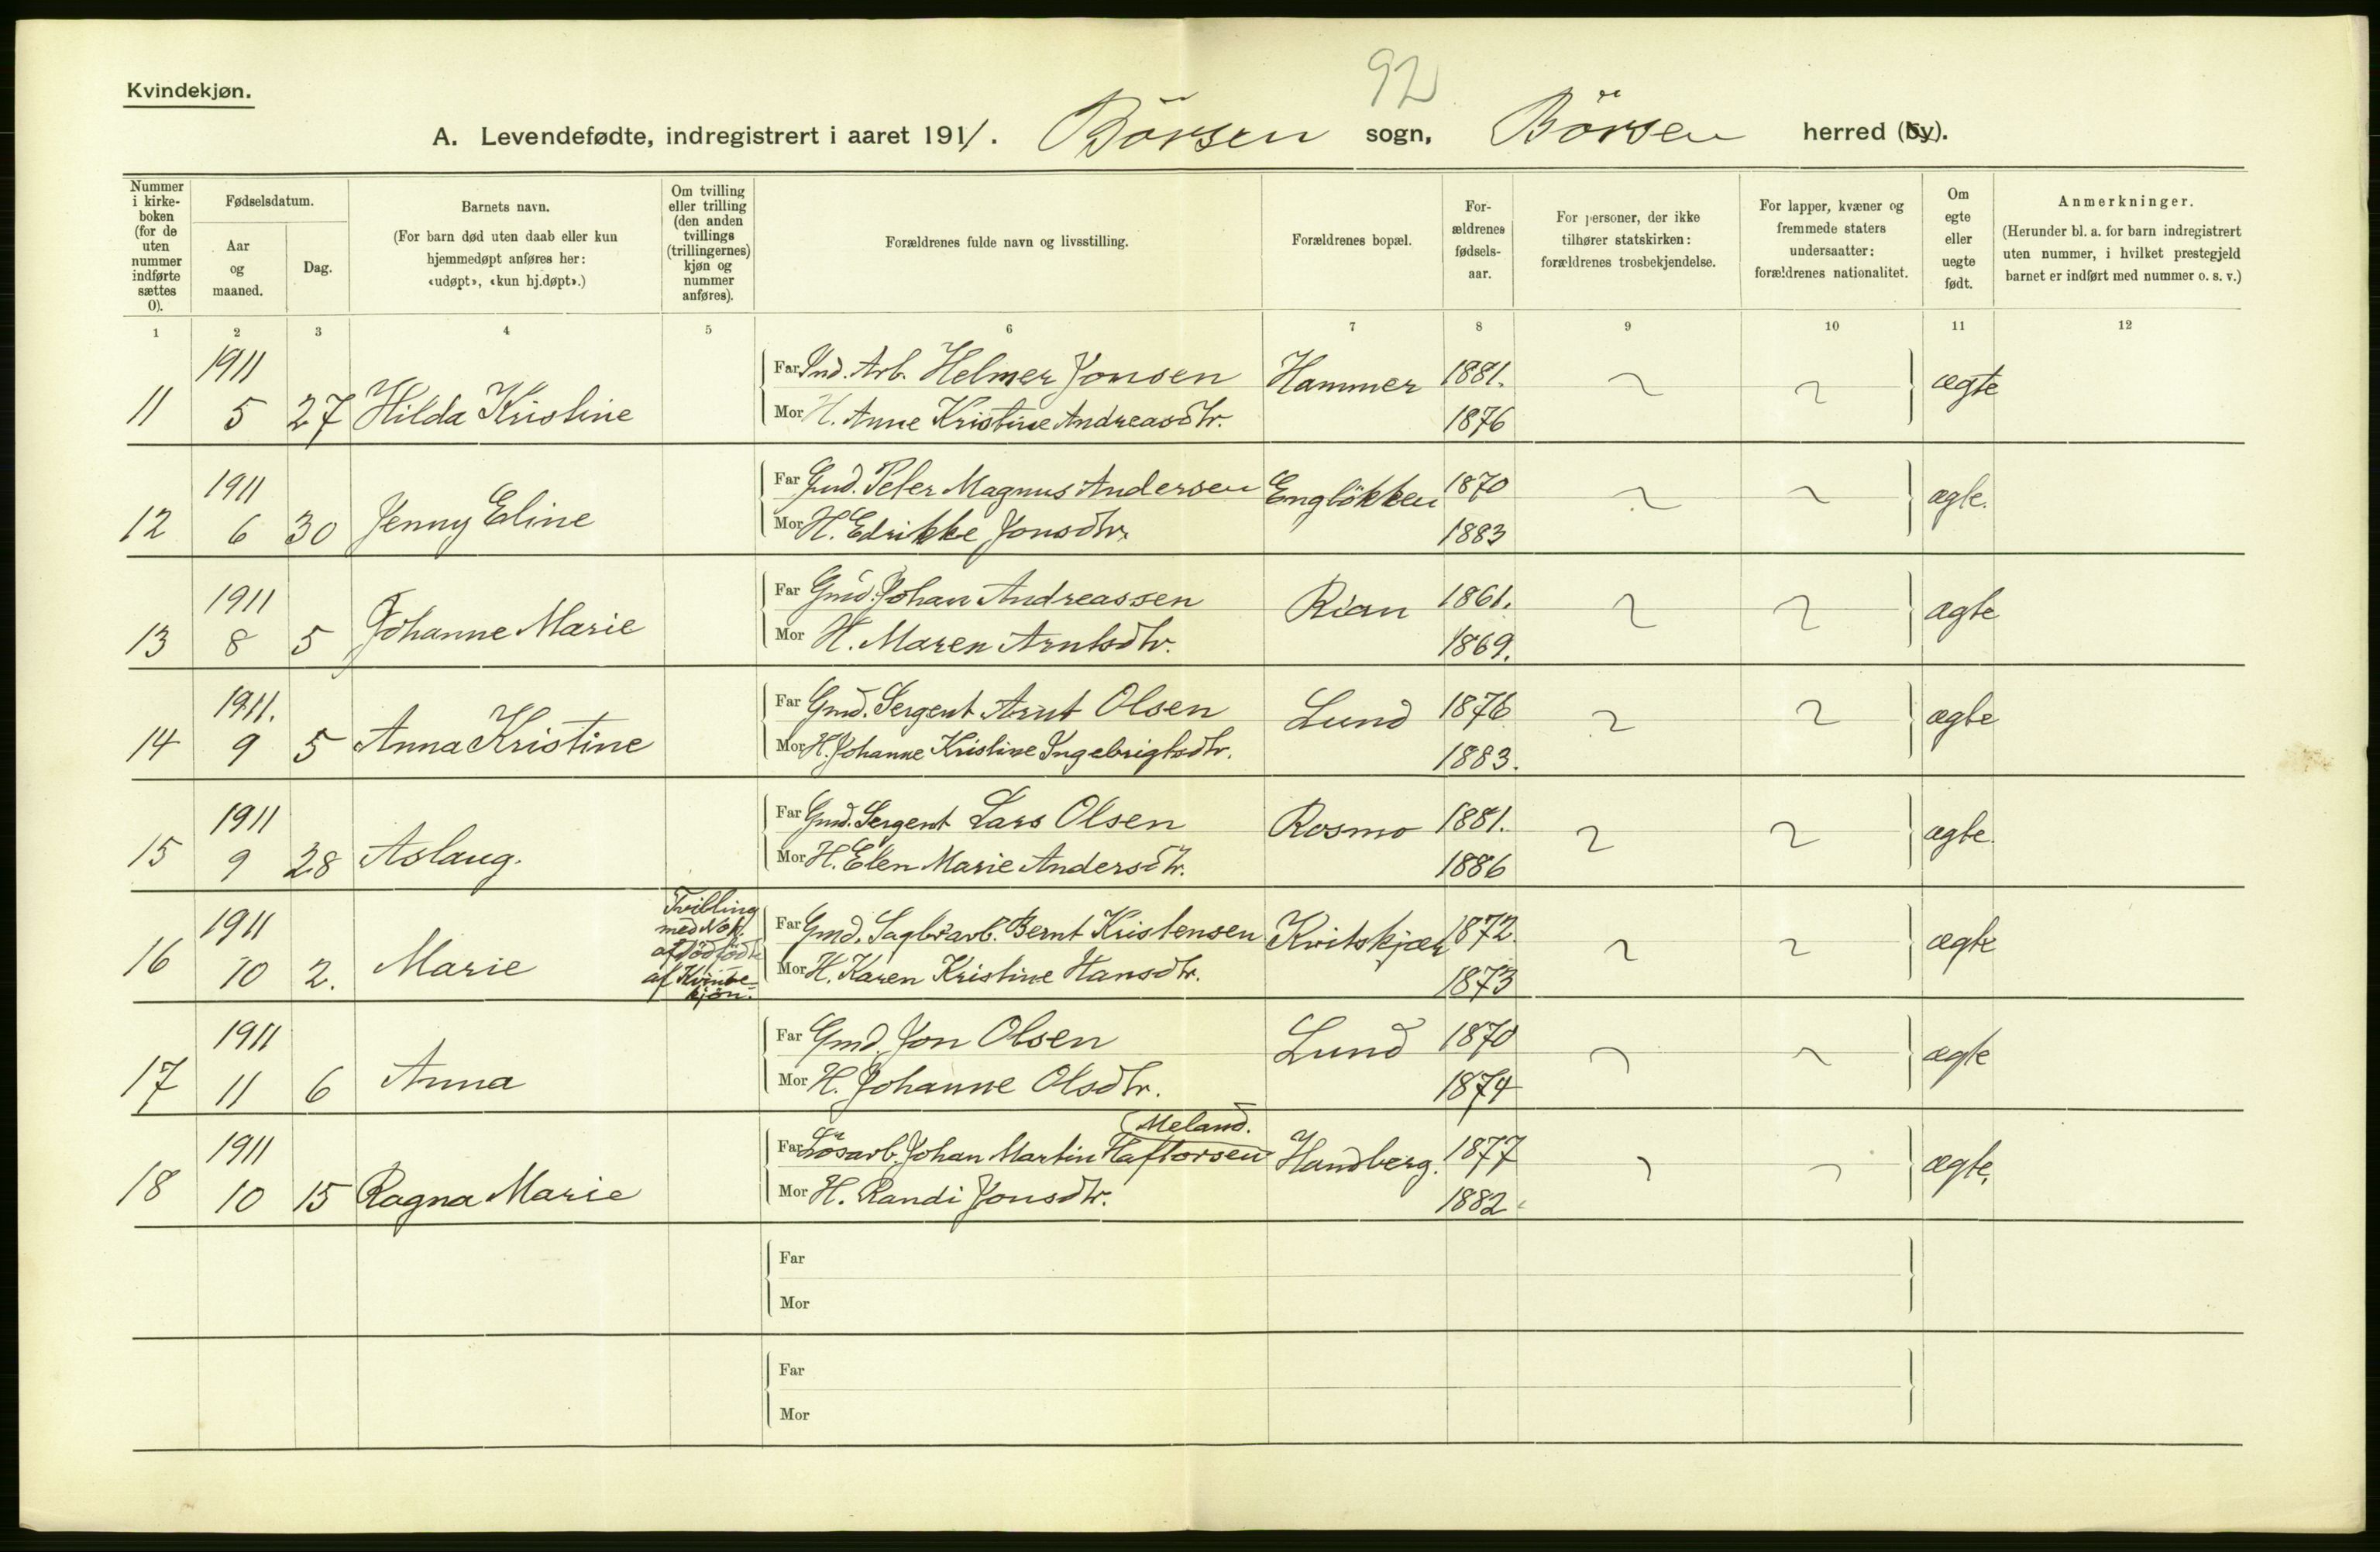 92
Kvindekjøn.
A. Levendefødte, indregistrert i aaret 1911. Börsen sogn, Börsen herred (by).
Nummer i kirke-boken (for de uten nummer indførte sættes 0).
Fødselsdatum.
Aar og maaned.
Dag.
Barnets navn.
(For barn død uten daab eller kun hjemmedøpt anføres her: «udøpt», «kun hj.døpt».)
Om tvilling eller trilling (den anden tvillings (trillingernes) kjøn og nummer anføres).
Forældrenes fulde navn og livsstilling.
Forældrenes bopæl.
For-ældrenes fødsels-aar.
For personer, der ikke tilhører statskirken: forældrenes trosbekjendelse.
For lapper, kvæner og fremmede staters undersaatter: forældrenes nationalitet.
Om egte eller uegte født.
Anmerkninger.
(Herunder bl. a. for barn indregistrert uten nummer, i hvilket prestegjeld barnet er indført med nummer o. s. v.)
1 2 3 4 5 6 7 8 9 10 11 12
1911 Far Ind. Arb. Helmer Jonsen Hammer 1881. ægte
11 5 27 Hilda Kristine Mor H. Anne Kristine Andreasdtr. 1876
1911 Far Gmd. Peter Magnus Andersen Englökken 1870 ægte.
12 6 30 Jenny Eline Mor H. Edrikke Jonsdtr. 1883
1911 Far Gmd. Johan Andreassen Rian 1861. ægte
13 8 5 Johanne Marie Mor H. Maren Arntsdtr. 1869.
1911. Far Gmd. Sergent Arnt Olsen Lund 1876 ægte
14 9 5 Anna Kristine Mor H. Johanne Kristine Ingebrigtsdtr. 1883.
1911 Far Gmd. Sergent Lars Olsen Rosmo 1881. ægte.
15 9 28 Aslaug. Mor H. Elen Marie Andersdtr. 1886
Tvilling med No 1. af dödfödte af Kvinde-kjön.
1911 Far Gmd. Sagbr.arb. Bernt Kristensen Kvitskjær 1872. ægte
16 10 2. Marie Mor H. Karen Kristine Hansdtr. 1873
1911 Far Gmd. Jon Olsen Lund 1870 ægte
17 11 6 Anna Mor H. Johanne Olsdtr. 1874
(Meland.
1911 Far Lösarb. Johan Martin Haftorsen Handberg. 1877 ægte.
18 10 15 Ragna Marie Mor H. Randi Jonsdtr. 1882
Far
Mor
Far
Mor